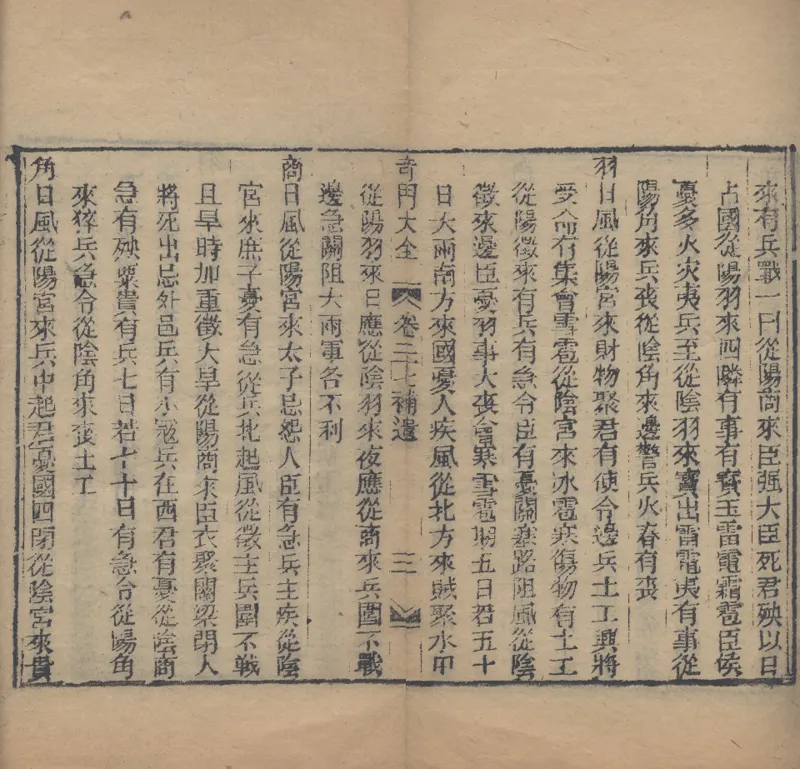 來有兵戰一曰從陽商來臣强大臣死君殃以日
占國從陽羽來四隣有事有寳玉雷電霜雹臣侯
憂多火灾夷兵至從陰羽來寳出雷電夷有事從
陽角來兵丧從陰角來邊警兵火春有丧
羽日風從陽宮來財物聚君有使令邊兵土工興將
受命有集會雪雹從陰宮來冰雹寒傷物有土工
從陽徵來有兵有急令臣有憂關塞路阻風從陰
徵來邊臣憂羽事大丧會寒雪雹期五日若五十
日大雨南方來國憂人疾風從北方來賊聚水中
奇門大全 卷二七補遺 三
從陽羽來日應從陰羽來夜應從商來兵圍不戰
邊急關阻大雨軍各不利
商日風從陽宮來太子忌怨人臣有急兵主疾從陰
宮來庶子憂有急從兵北起風從徵主兵圍不戦
且旱時加重徵大旱從陽商來臣衣聚關梁閉人
將死出忌外邑兵有小冦兵在西君有憂從陰商
急有殃粟貴有兵七日若七十日有急令從陽角
來猝兵急令從陰角來丧土工
角日風從陽宮來兵中起君憂國四閉從陰宮來貴